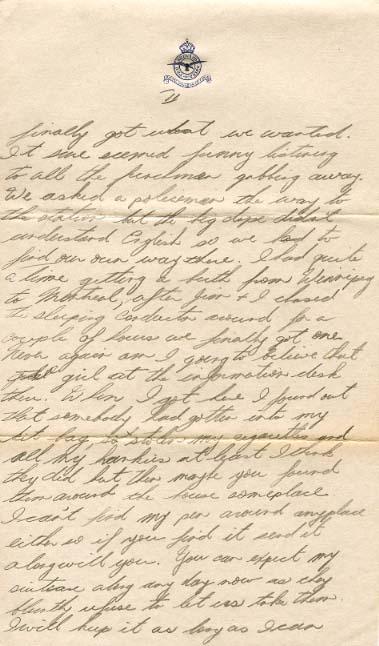 II
finally got what we wanted.
It sure seemed funny listening
to all the frenchmen gabbing away.
We asked a policeman the way to
the station but the big dope didn't
understand English so we had to
find our own way there. I had quite
a time getting a berth from Winnipeg
to Montreal, after Jim & I chased
the sleeping conductor around for a
couple of hours we finally got one
Never again am I going to believe that
girl at the information desk
there. When I got here I found out
that somebody had gotten into my
kit bag & stolen my cigarettes and
all my hankies at least I think
they did but then maybe you found
them around the house someplace
I can't find my pen around anyplace
either so if you find it send it
along will you. You can expect my
suitcase along any day now as they
refuse to let us take them.
I will keep it as long as I can